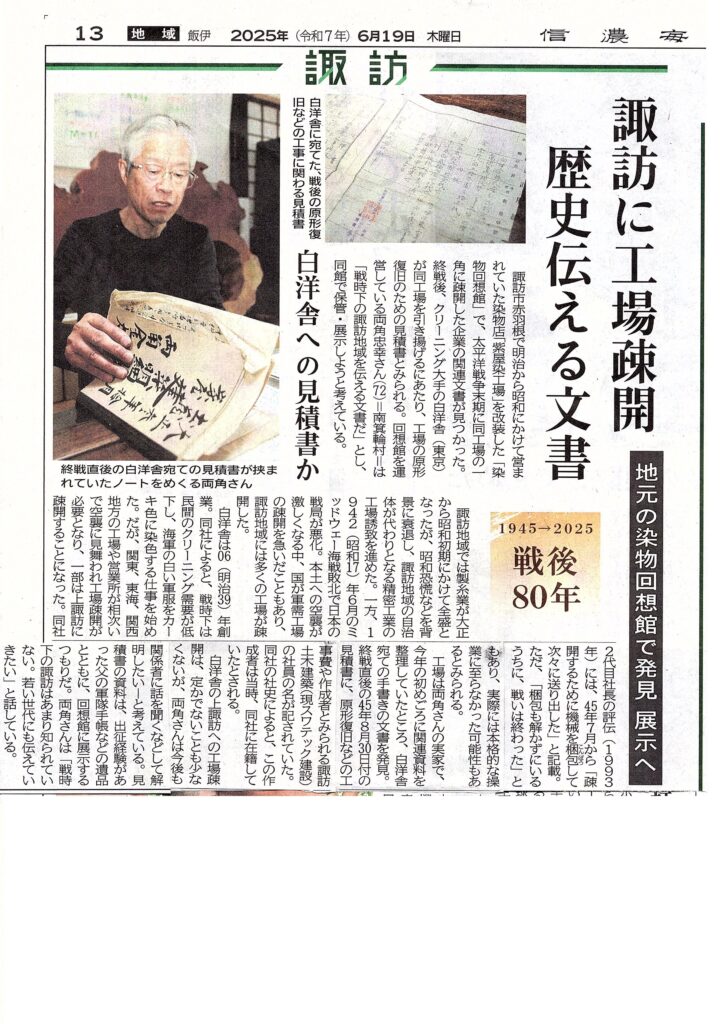 13 地域 飯伊 2025年（令和7年）6月19日 木曜日 信濃毎
諏訪
諏訪に工場疎開
歴史伝える文書
地元の染物回想館で発見 展示へ
白洋舎への見積書か
白洋舎に宛てた、戦後の原形復
旧などの工事に関わる見積書
終戦直後の白洋舎宛ての見積書が挟ま
れていたノートをめくる両角さん
諏訪市赤羽根で明治から昭和にかけて営ま
れていた染物店「紫屋染工場」を改装した「染
物回想館」で、太平洋戦争末期に同工場の一
角に疎開した企業の関連文書が見つかった。
終戦後、クリーニング大手の白洋舎（東京）
が同工場を引き揚げるにあたり、工場の原形
復旧のための見積書とみられる。回想館を運
営している両角忠幸さん（72）＝南箕輪村＝は
「戦時下の諏訪地域を伝える文書だ」とし、
同館で保管・展示しようと考えている。
1945→2025
戦後
80年
諏訪地域では製糸業が大正
から昭和初期にかけて全盛と
なったが、昭和恐慌などを背
景に衰退し、諏訪地域の自治
体が代わりとなる精密工業の
工場誘致を進めた。一方、1
942（昭和17）年6月のミ
ッドウェー海戦敗北で日本の
戦局が悪化。本土への空襲が
激しくなる中、国が軍需工場
の疎開を急いだこともあり、
諏訪地域には多くの工場が疎
開した。
白洋舎は06（明治39）年創
業。同社によると、戦時下は
民間のクリーニング需要が低
下し、海軍の白い軍服をカー
キ色に染色する仕事を始め
た。だが、関東、東海、関西
地方の工場や営業所が相次い
で空襲に見舞われ工場疎開が
必要となり、一部は上諏訪に
疎開することになった。同社
2代目社長の評伝（1993
年）には、45年7月から「疎
開するために機械を梱包して
次々に送り出した」と記載。
ただ、「梱包も解かずにいる
うちに、戦いは終わった」と
もあり、実際には本格的な操
業に至らなかった可能性もあ
るとみられる。
工場は両角さんの実家で、
今年の初めごろに関連資料を
整理していたところ、白洋舎
宛ての手書きの文書を発見。
終戦直後の45年8月30日付の
見積書に、原形復旧などの工
事費や作成者とみられる諏訪
土木建築（現スワテック建設）
の社員の名が記されていた。
同社の社史によると、この作
成者は当時、同社に在籍して
いたとされる。
白洋舎の上諏訪への工場疎
開は、定かでないことも少な
くないが、両角さんは今後も
関係者に話を聞くなどして解
明したい―と考えている。見
積書の資料は、出征経験があ
った父の軍隊手帳などの遺品
とともに、回想館に展示する
つもりだ。両角さんは「戦時
下の諏訪はあまり知られてい
ない。若い世代にも伝えてい
きたい」と話している。